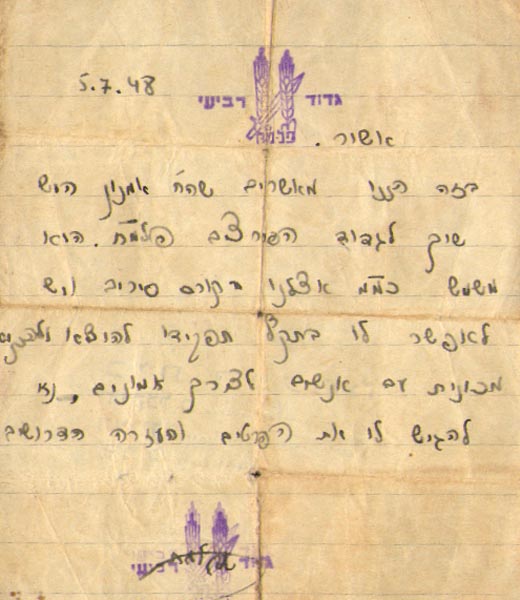 5.7.48
גדוד רביעי
פלמ"ח
אישור.
בזה הננו מאשרים שהח' אמנון היש
שיך לגדוד הפורצים פלמ"ח. הוא
משמש כמ"מ אצלנו בקורס סיירים ויש
לאפשר לו בתקף תפקידו להוציא ולהכניס
מכונית עם אנשים לצרך אמונים, נא
להגיש לו את הפרטים והעזרה הדרושים
גדוד רביעי